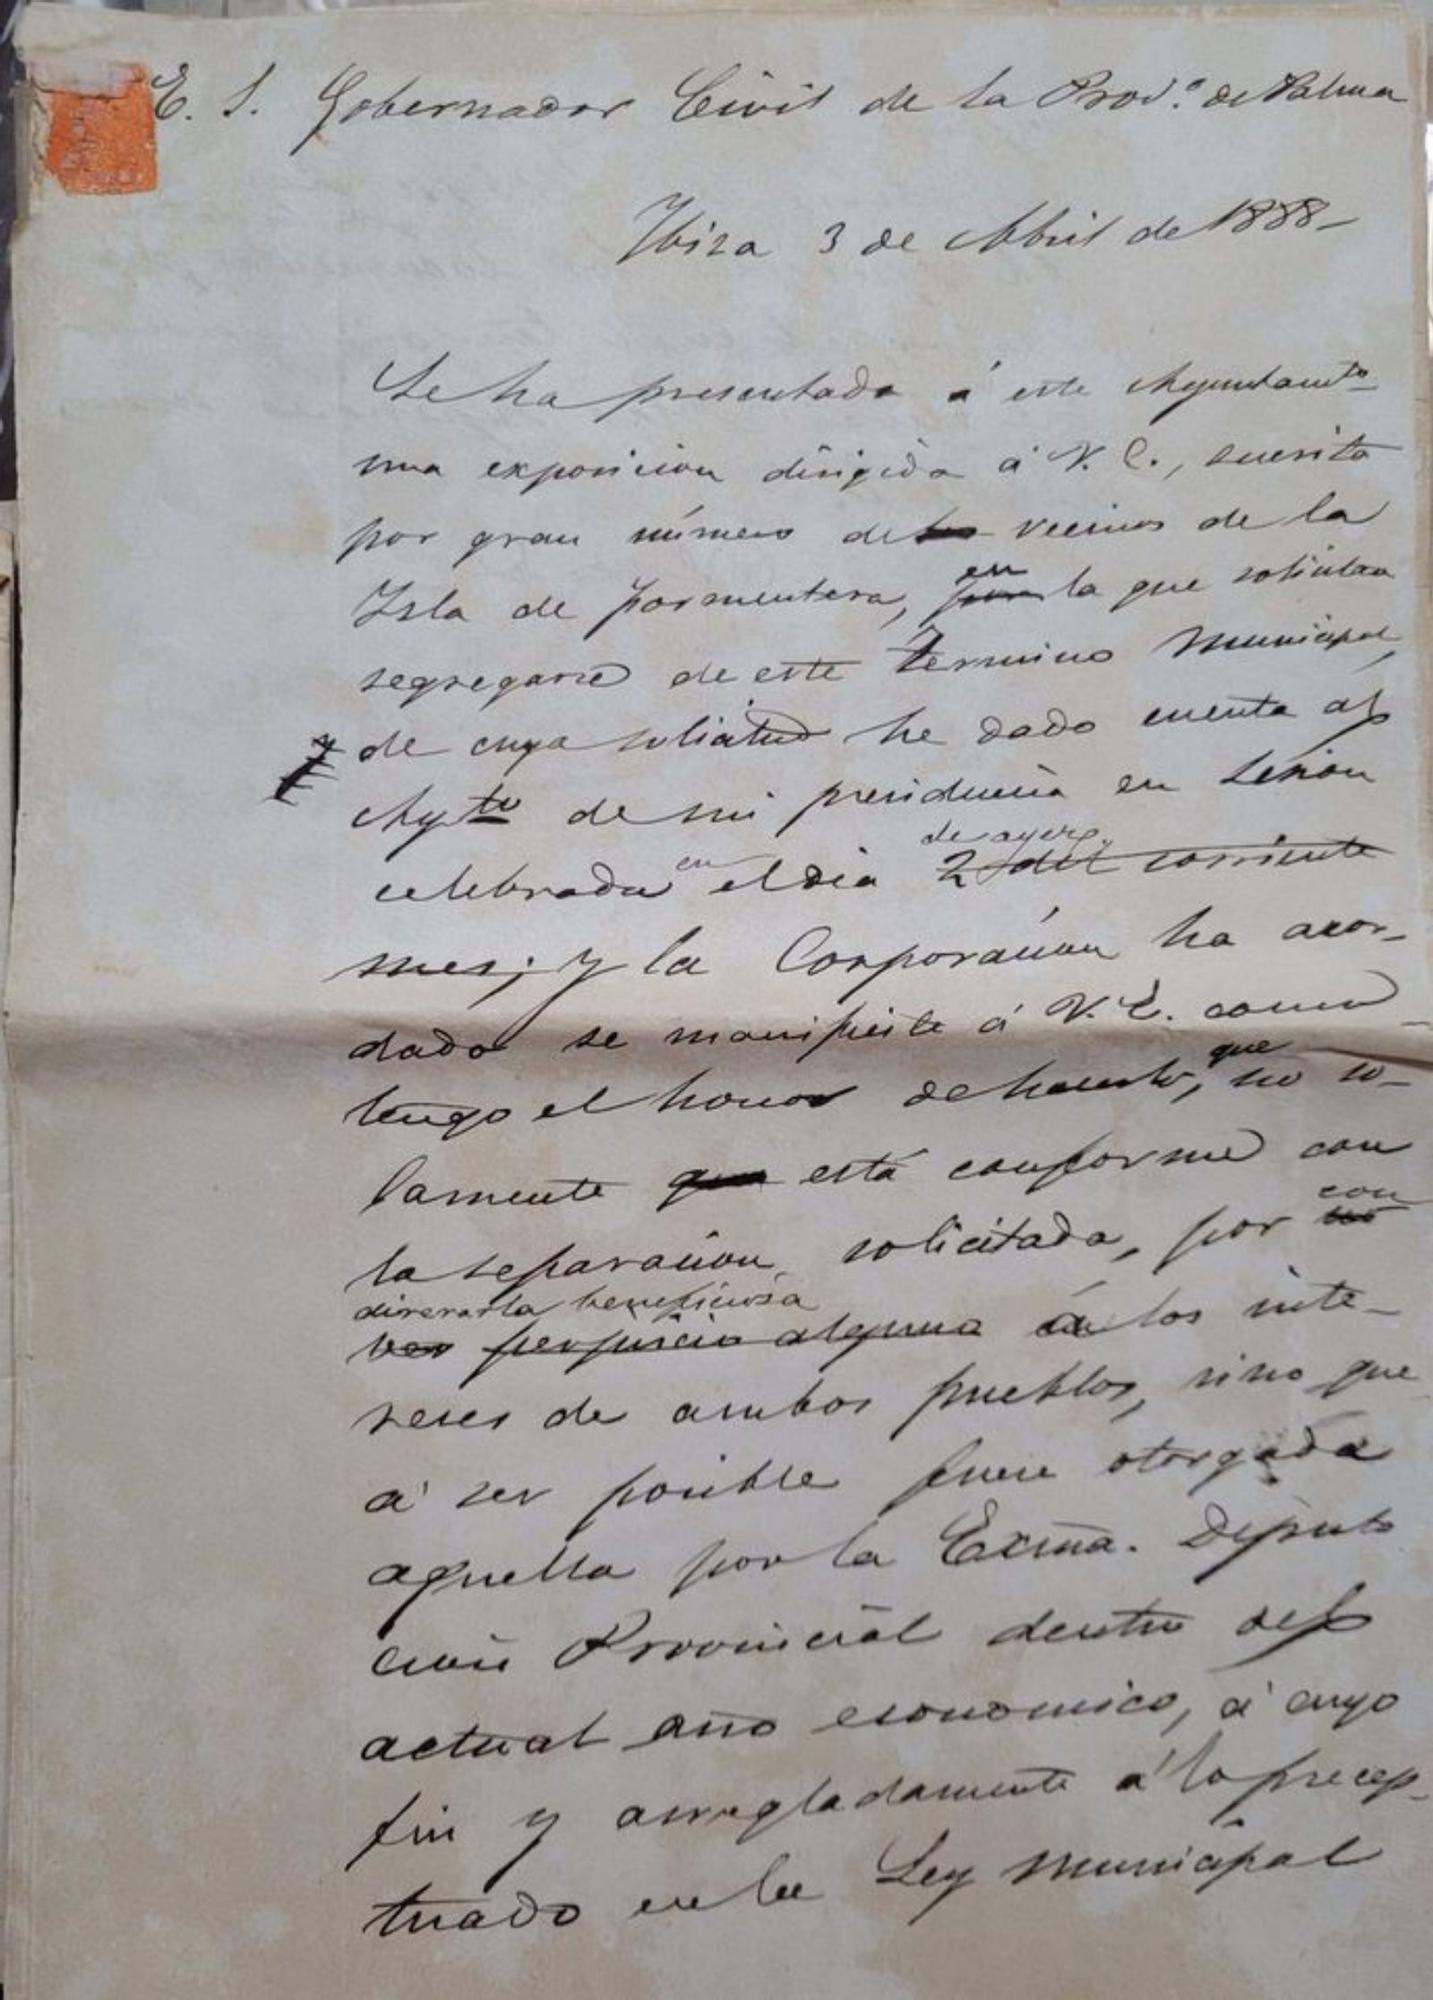 E. S. Gobernador Civil de la Prov.ª de Palma
Ibiza 3 de Abril de 1888-
Se ha presentado á este Ayuntamto
una exposicion dirigida á V. E., suscrita
por gran número de los vecinos de la
en
Isla de Formentera, por la que solicitan
segregarse de este Término Municipal,
y de cuya solicitud he dado cuenta al
Ayto de mi presidencia en sesión
de ayer
celebrada en el dia 2 del corriente
mes; y la Corporacion ha acor-
dado se manifieste á V. E. como
que
tengo el honor de hacerlo, no so-
lamente que está conforme con
con
la separacion solicitada, por no
siderarla beneficiosa
ver perjuicio alguno á los inte-
reses de ambos pueblos, sino que
á ser posible fuese otorgada
aquella por la Exma. Diputa
cion Provincial dentro del
actual año economico, á cuyo
fin y arregladamente á lo precep-
tuado en la Ley Municipal